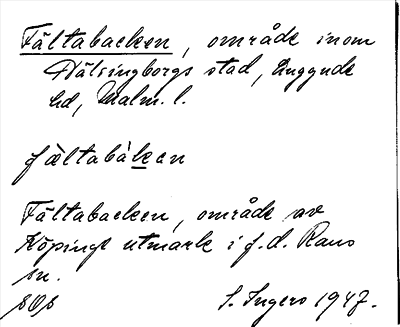 Fältabacken, område inom
Hälsingborgs stad, Luggude
hd, Malm. l.
fæltabàken
Fältabacken, område av
Köpinge utmark i f.d. Raus
sn.
S. Ingers 1947.